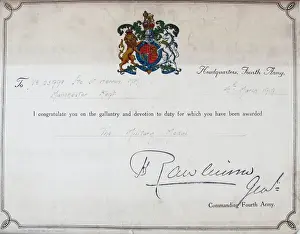 Headquarters Fourth Army.
To
Manchester Regt
I congratulate you on the gallantry and devotion to duty for which you have been awarded
The Military Medal
H Rawlinson
Genl.
Commanding Fourth Army.